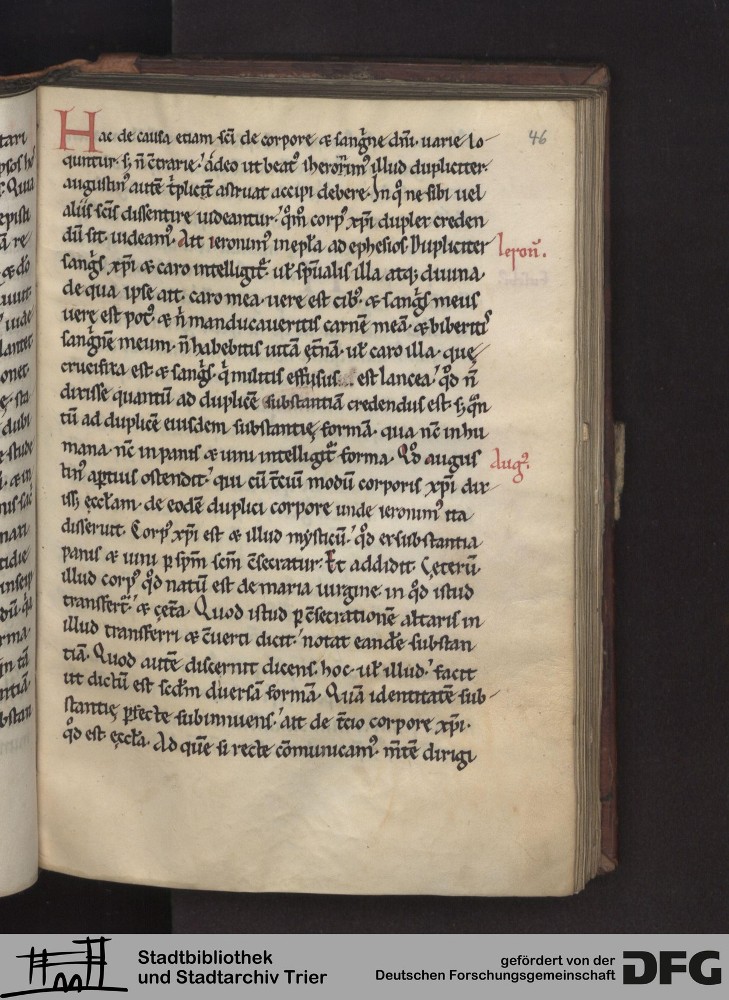 46
Hac de causa etiam sc̄i de corpore & sang̍ne dn̄i. uarie lo
quuntur. s; n̄ c̄trarie. Adeo ut beat᷒ iheronim᷒ illud dupliciter.
augustin᷒ autē t̍plicit̄ astruat accipi debere. In q᷒ ne sibi uel
aliis sc̄is dissentire uideantur. q᷒m̄ corp᷒ xp̄i duplex creden
dū sit. uideam᷒. Ait ieronim᷒ in ep̄la ad ephesios. Dupliciter
Ieron̄.
sang̍s xp̄i & caro intelligit᷑. ul̵ sp̄ualis illa atq; diuina.
de qua ipse ait. caro mea uere est cib᷒. & sang̍s meus
uere est pot᷒. & n̍ manducaueritis carnē meā. & biberitis
sang̍nem meum. n̄ habebitis uitā et̄nā. ul̵ caro illa. quę
crucifixa est & sang̍s. q̍ militis effusus est lancea. q᷒d n̄
dixisse quantū ad duplicē substantiā credendus est. s; q̍n
tū ad duplicē eiusdem substantię formā. qua nc̄ in hu
mana. nc̄ in panis & uini intelligit᷑ forma. Q᷒d augus
Aug᷒.
tin᷒ apertius ostendit. qui cū t̄ciū modū corporis xp̄i dix
iss; ęccl̵am. de eodē duplici corpore unde ieronim᷒ ita
disseruit. Corp᷒ xp̄i est & illud mysticū. q᷒d ex substantia
panis & uini p sp̄m sc̄m c̄secratur. Et addidit. Cęterū
illud corp᷒ q᷒d natū est de maria uirgine. in q᷒d istud
transfert᷑. & cęt̄a. Quod istud p c̄secrationē altaris in
illud transferri & c̄uerti dicit. notat eandē substan
tiā. Quod autē discernit dicens. hoc. ul̵ illud. facit
ut dictū est scd̄m diuersā formā. Quā identitatē sub
stantię pfecte subinnuens. ait de t̄cio corpore xp̄i.
q᷒d est ęccl̵a. Ad quē si recte cōmunicam᷒. m̄tē dirigi
Stadtbibliothek
und Stadtarchiv Trier
gefördert von der
Deutschen Forschungsgemeinschaft
DFG